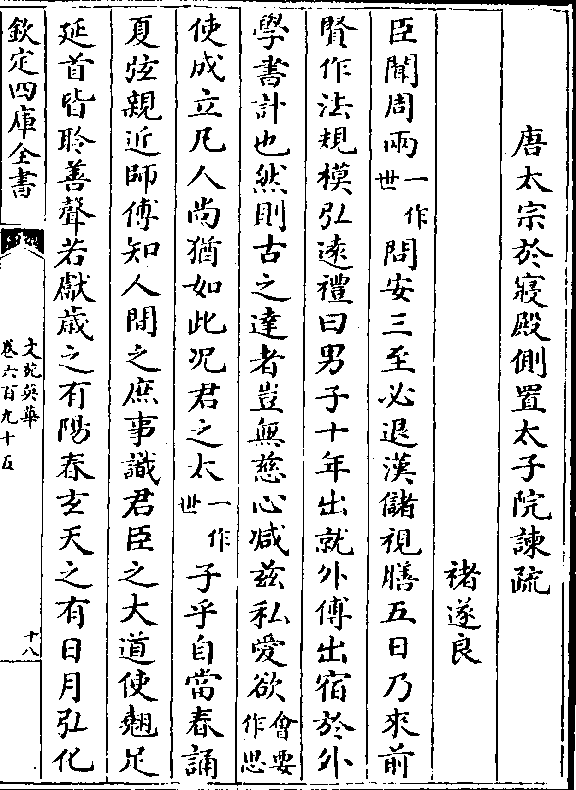 唐太宗於寢殿側置太子院諫疏
褚遂良
臣聞周兩一作世問安三至必退漢儲視膳五日乃來前
賢作法規模弘遠禮曰男子十年出就外傅出宿於外
學書計也然則古之達者豈無慈心减兹私愛欲㑹要作思
使成立凡人尚猶如此况君之太一作世子乎自當春誦
夏弦親近師傅知人間之庶事識君臣之大道使翹足
延首皆聆善聲若獻歳之有陽春玄天之有日月弘化
欽定四庫全書
文苑英華
卷六百九十五
十八